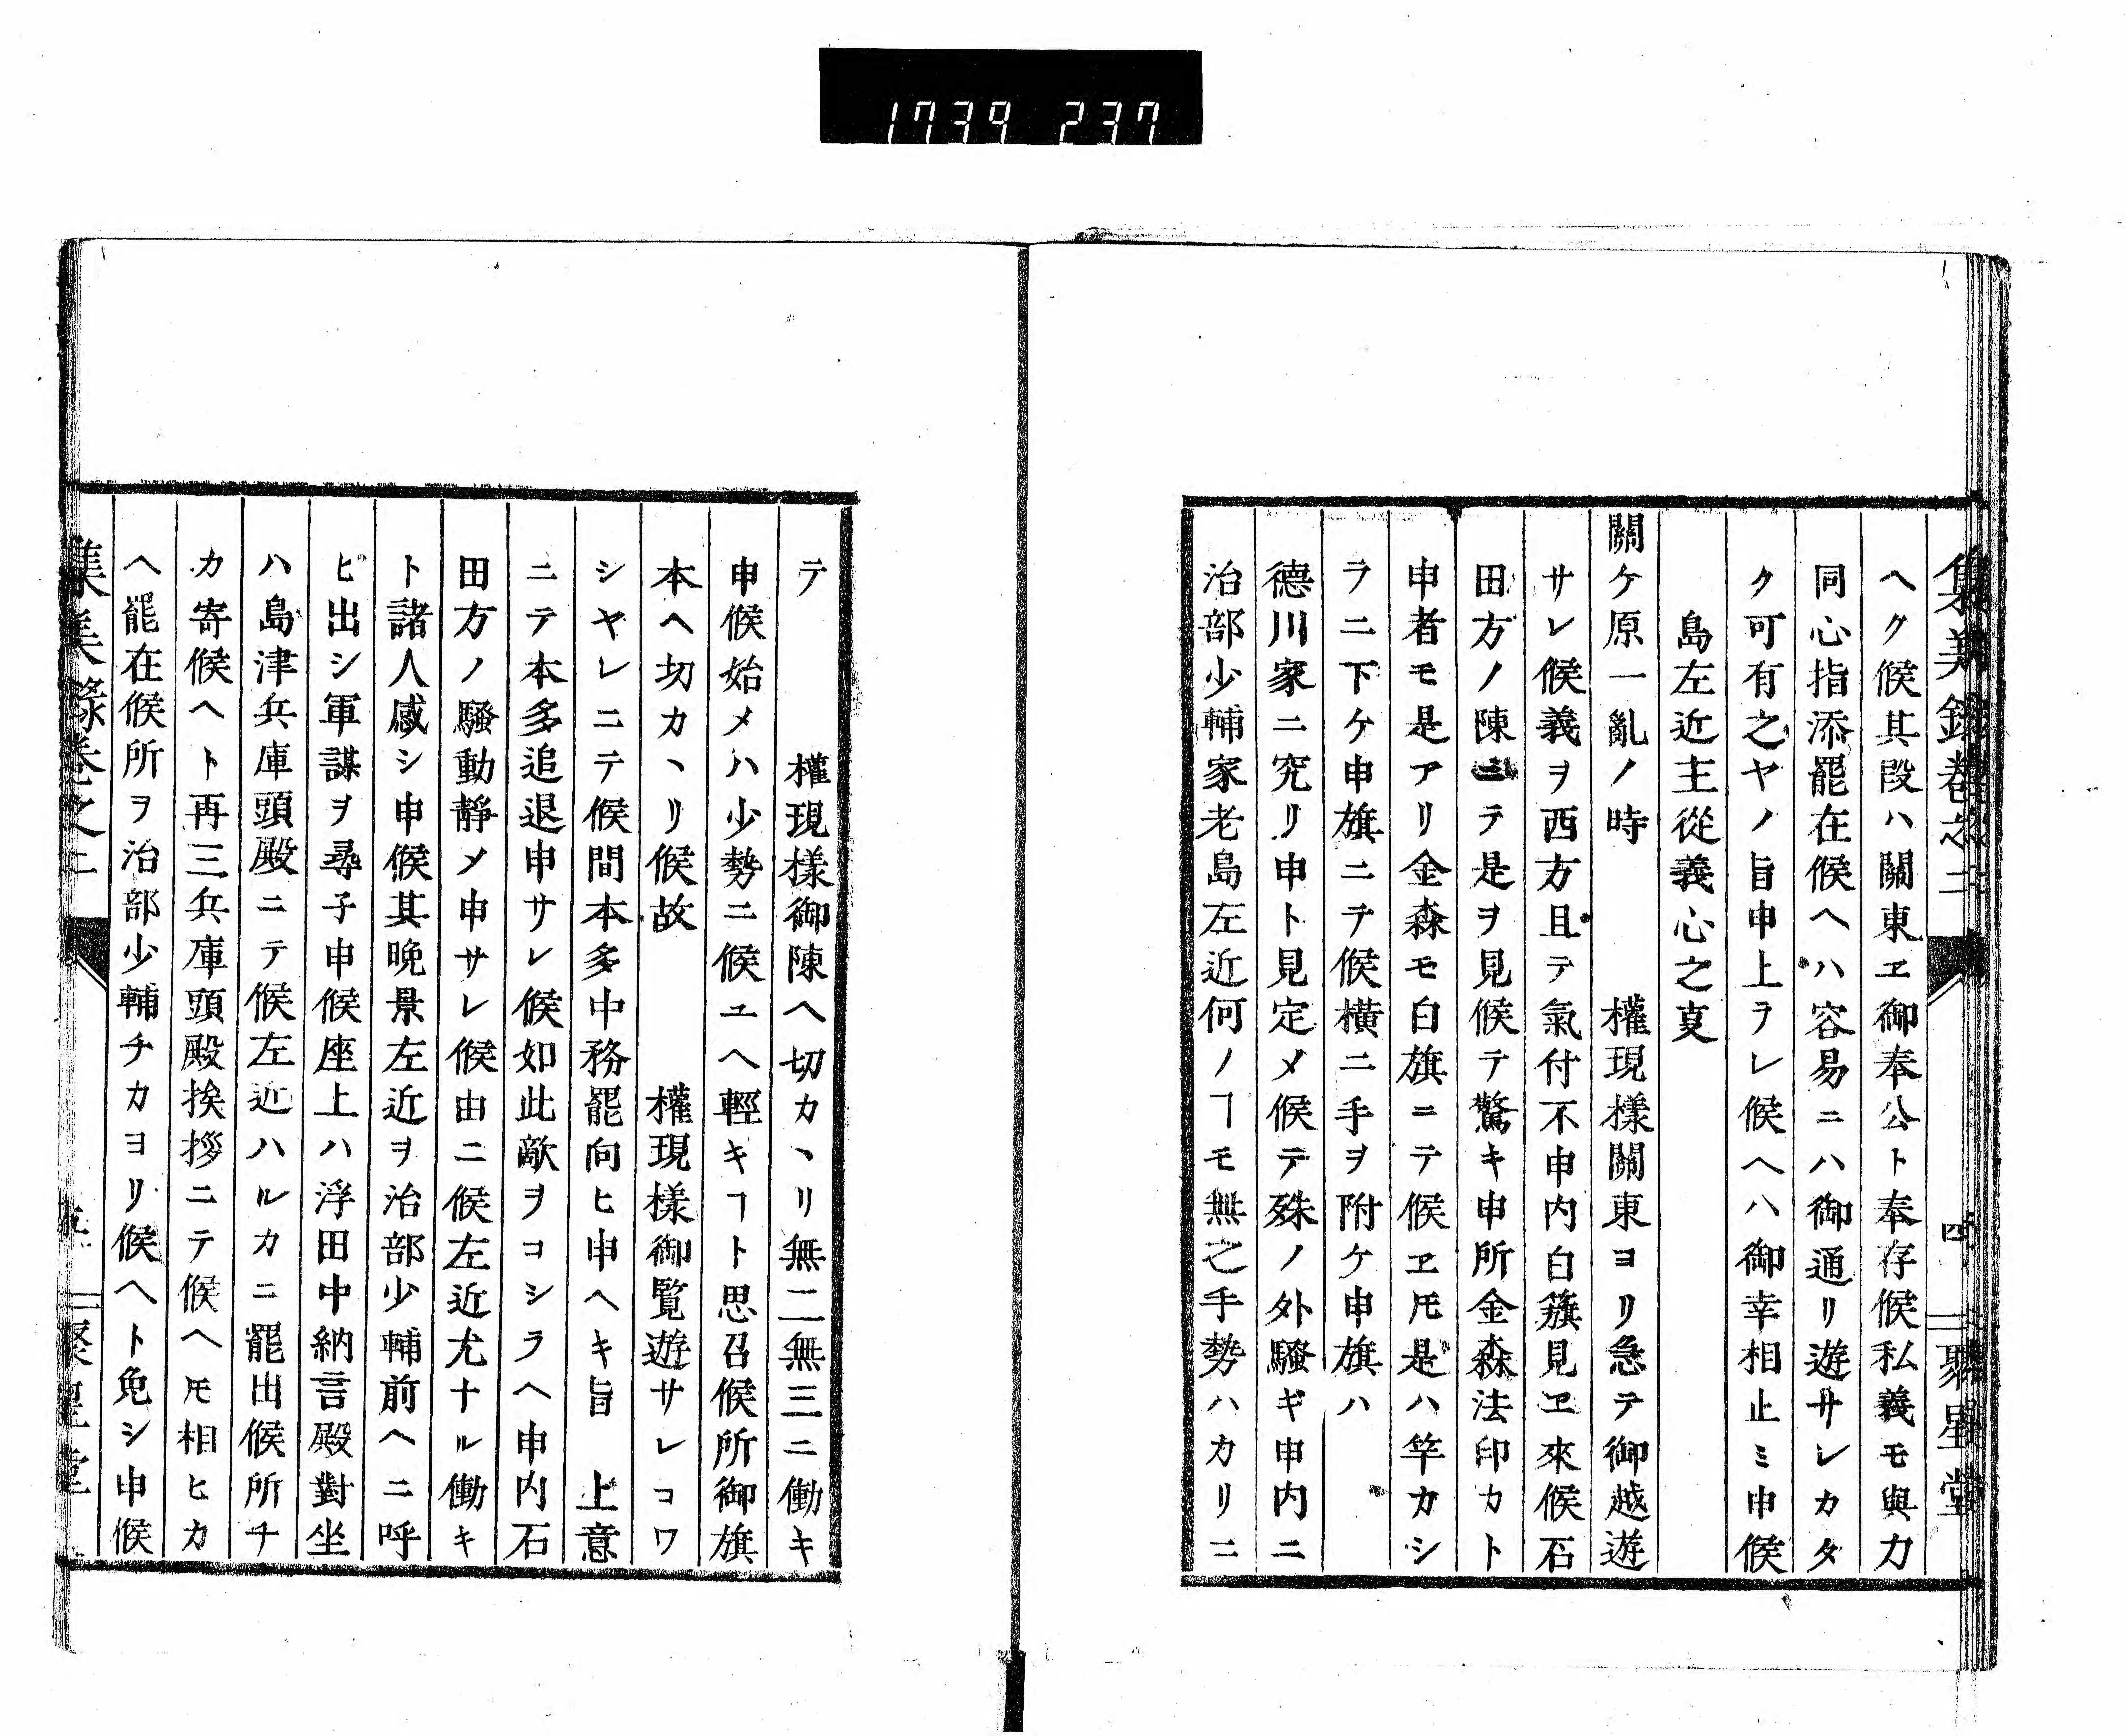 1739 237
集義録卷之二 四 聚星堂
ヘク候其段ハ關東ヱ御奉公ト奉存候私義モ與力
同心指添罷在候ヘハ容易ニハ御通リ遊サレカタ
ク可有之ヤノ旨申上ラレ候ヘハ御幸相止ミ申候
島左近主從義心之㕝
關ケ原一亂ノ時 權現樣關東ヨリ急テ御越遊
サレ候義ヲ西方且テ氣付不申内白籏見ヱ來候石
田方ノ陳ニテ是ヲ見候テ驚キ申所金森法印カト
申者モ是アリ金森モ白旗ニテ候ヱ𪜈是ハ竿カシ
ラニ下ケ申旗ニテ候橫ニ手ヲ附ケ申旗ハ
德川家ニ究リ申ト見定メ候テ殊ノ外騷ギ申内ニ
治部少輔家老島左近何ノヿモ無之手勢ハカリニ
テ 權現樣御陳ヘ切カヽリ無二無三ニ働キ
申候始メハ少勢ニ候ユヘ輕キヿト思召候所御旗
本ヘ切カヽリ候故 權現樣御覽遊サレコワ
シヤレニテ候間本多中務罷向ヒ申ヘキ旨 上意
ニテ本多追退申サレ候如此敵ヲコシラヘ申内石
田方ノ騷動靜メ申サレ候由ニ候左近尤ナル働キ
ト諸人感シ申候其晩景左近ヲ治部少輔前ヘニ呼
ヒ出シ軍謀ヲ尋子申候座上ハ浮田中納言殿對坐
ハ島津兵庫頭殿ニテ候左近ハルカニ罷出候所チ
カ寄候ヘト再三兵庫頭殿挨拶ニテ候ヘ𪜈相ヒカ
ヘ罷在候所ヲ治部少輔チカヨリ候ヘト免シ申候
集義録卷之二 五 聚星堂